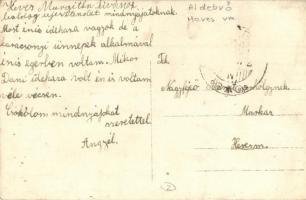 Hever Margitka kívánok
boldog újesztendőt mindnyájatoknak.
Most énis idehara vagyok de a
karácsonyi ünnepek alkalmával
énis Egerben voltam. Mikor
Dani idehara volt én is voltam
vele vécsen.
Csókolom mindnyájokat
szeretettel.
Angyél.
Aldebrő
Heves vm
Tek
Nagyfejeő
Markaz
Hevesm.